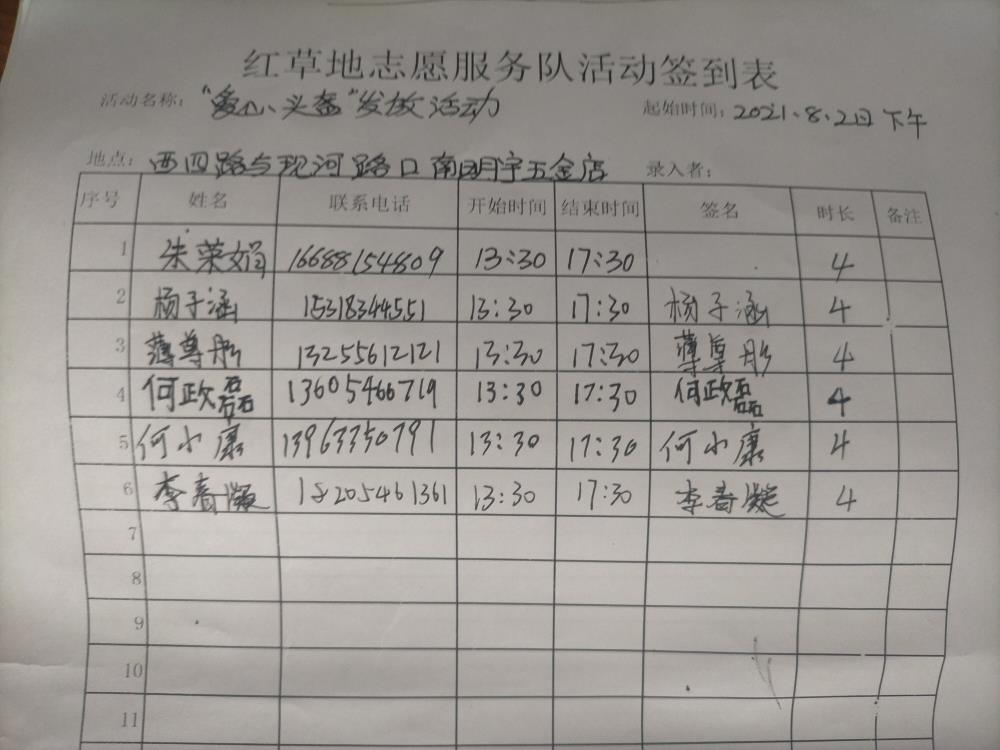 红草地志愿服务队活动签到表
活动名称：“爱心头盔”发放活动 起始时间：2021.8.2日下午
地点：西四路与现河路口南明宇五金店 录入者：
序号 姓名 联系电话 开始时间 结束时间 签名 时长 备注
1 朱荣娟 16688154809 13:30 17:30 4
2 杨子涵 15318344551 13:30 17:30 杨子涵 4
3 薄尊彤 13255612121 13:30 17:30 薄尊彤 4
4 何政磊 13605466719 13:30 17:30 何政磊 4
5 何小康 13963350791 13:30 17:30 何小康 4
6 李春凝 18205461361 13:30 17:30 李春凝 4
7
8
9
10
11